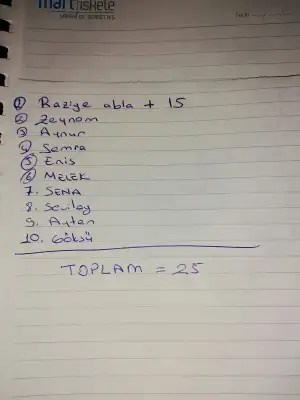 martı iskele
① Raziye abla + 15
② Zeynom
③ Aynur
④ Semra
⑤ Enis
⑥ MELEK
7. SENA
8. Sevilay
9. Ayten
10. Göksü
TOPLAM = 25